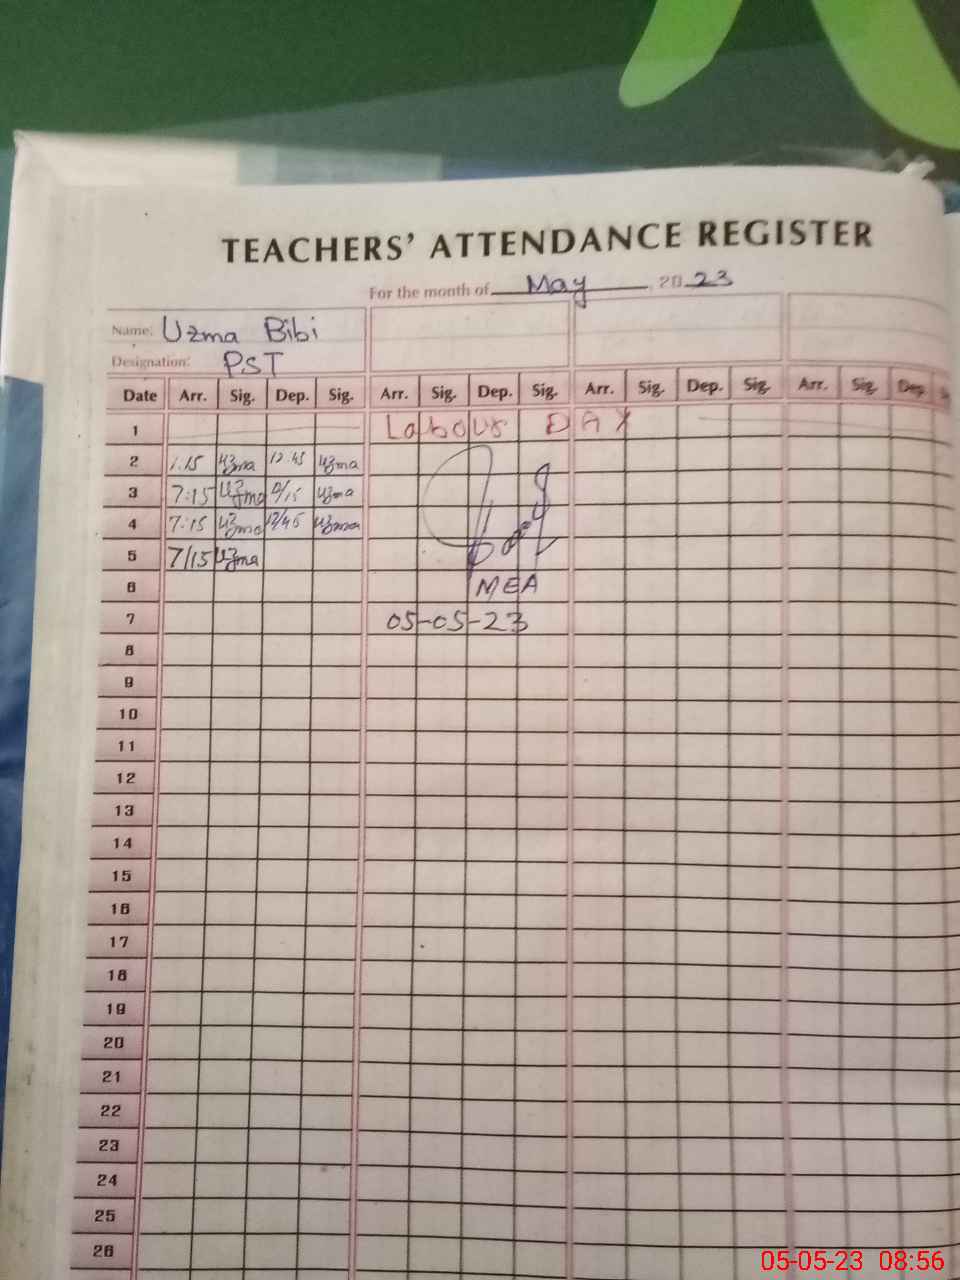 TEACHERS' ATTENDANCE REGISTER
For the month of May, 2023
Name: Uzma Bibi
Designation: PST
Date Arr. Sig. Dep. Sig. Arr. Sig. Dep. Sig. Arr. Sig. Dep. Sig. Arr. Sig. Dep.
1 Labour DAY
2 7.15 Uzma 12.45 Uzma
3 7:15 Uzma Uzma
4 7:15 Uzma 12/45 Uzma
5 7/15 Uzma
6 MEA
7 05-05-23
8
9
10
11
12
13
14
15
16
17
18
19
20
21
22
23
24
25
26
05-05-23 08:56